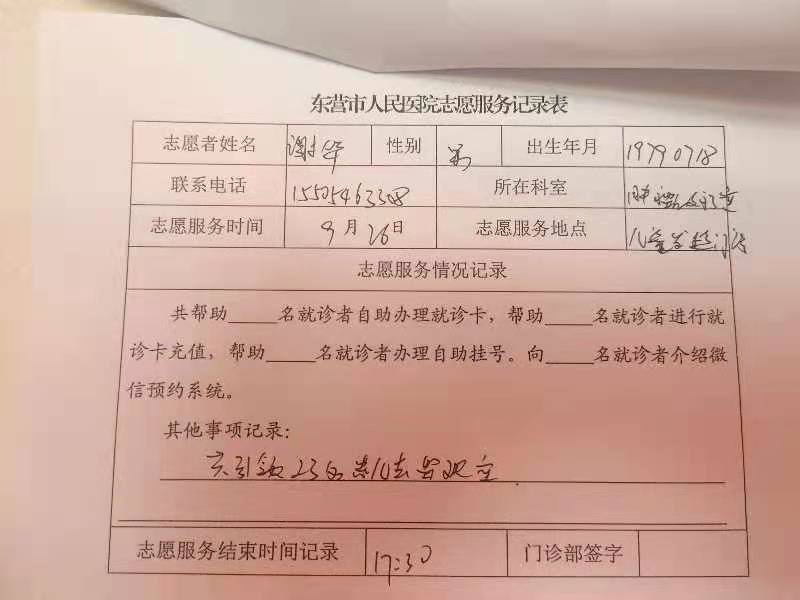 东营市人民医院志愿服务记录表
志愿者姓名 谢华 性别 男 出生年月 19790718
联系电话 15505463308 所在科室
志愿服务时间 9月26日 志愿服务地点 儿童发热门诊
志愿服务情况记录
共帮助____名就诊者自助办理就诊卡，帮助____名就诊者进行就
诊卡充值，帮助____名就诊者办理自助挂号。向____名就诊者介绍微
信预约系统。
其他事项记录：
共引领23名患儿去留观室
志愿服务结束时间记录 17:30 门诊部签字